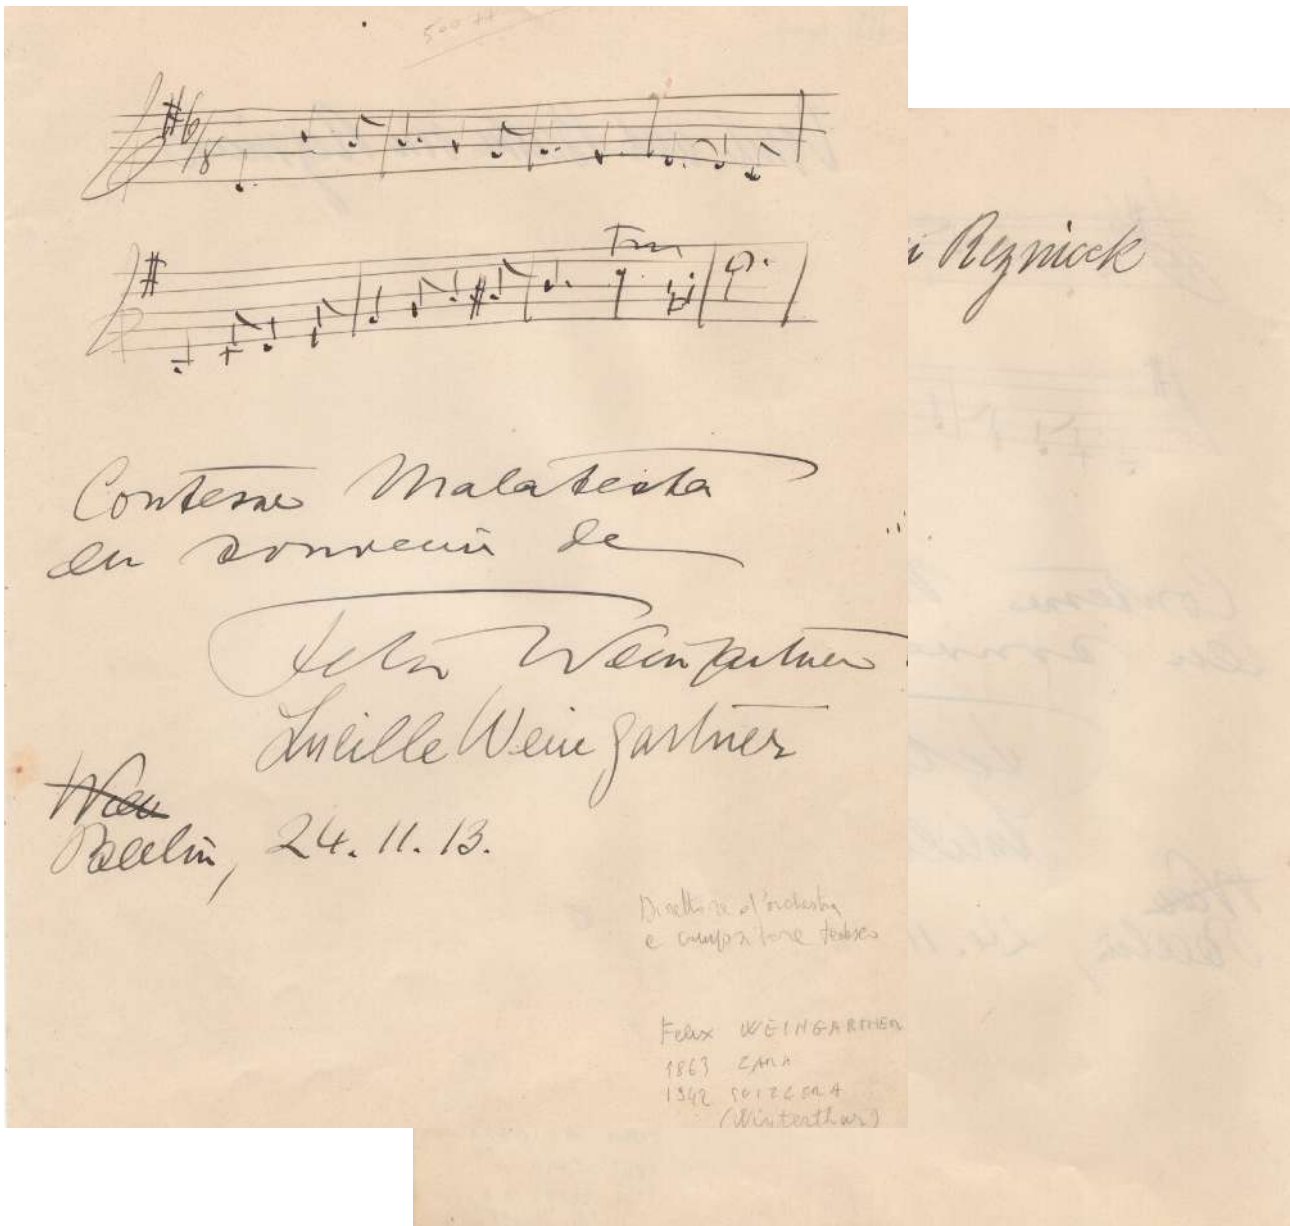 6/8
Contesse Malatesta
en souvenir de
Felix Weingartner
Lucille Weingartner
Wien
Berlin, 24.11.13.
Direttore d'orchestra
e compositore tedesco
Felix WEINGARTNER
1863 ZARA
1942 SVIZZERA
(Winterthur)
Reznicek